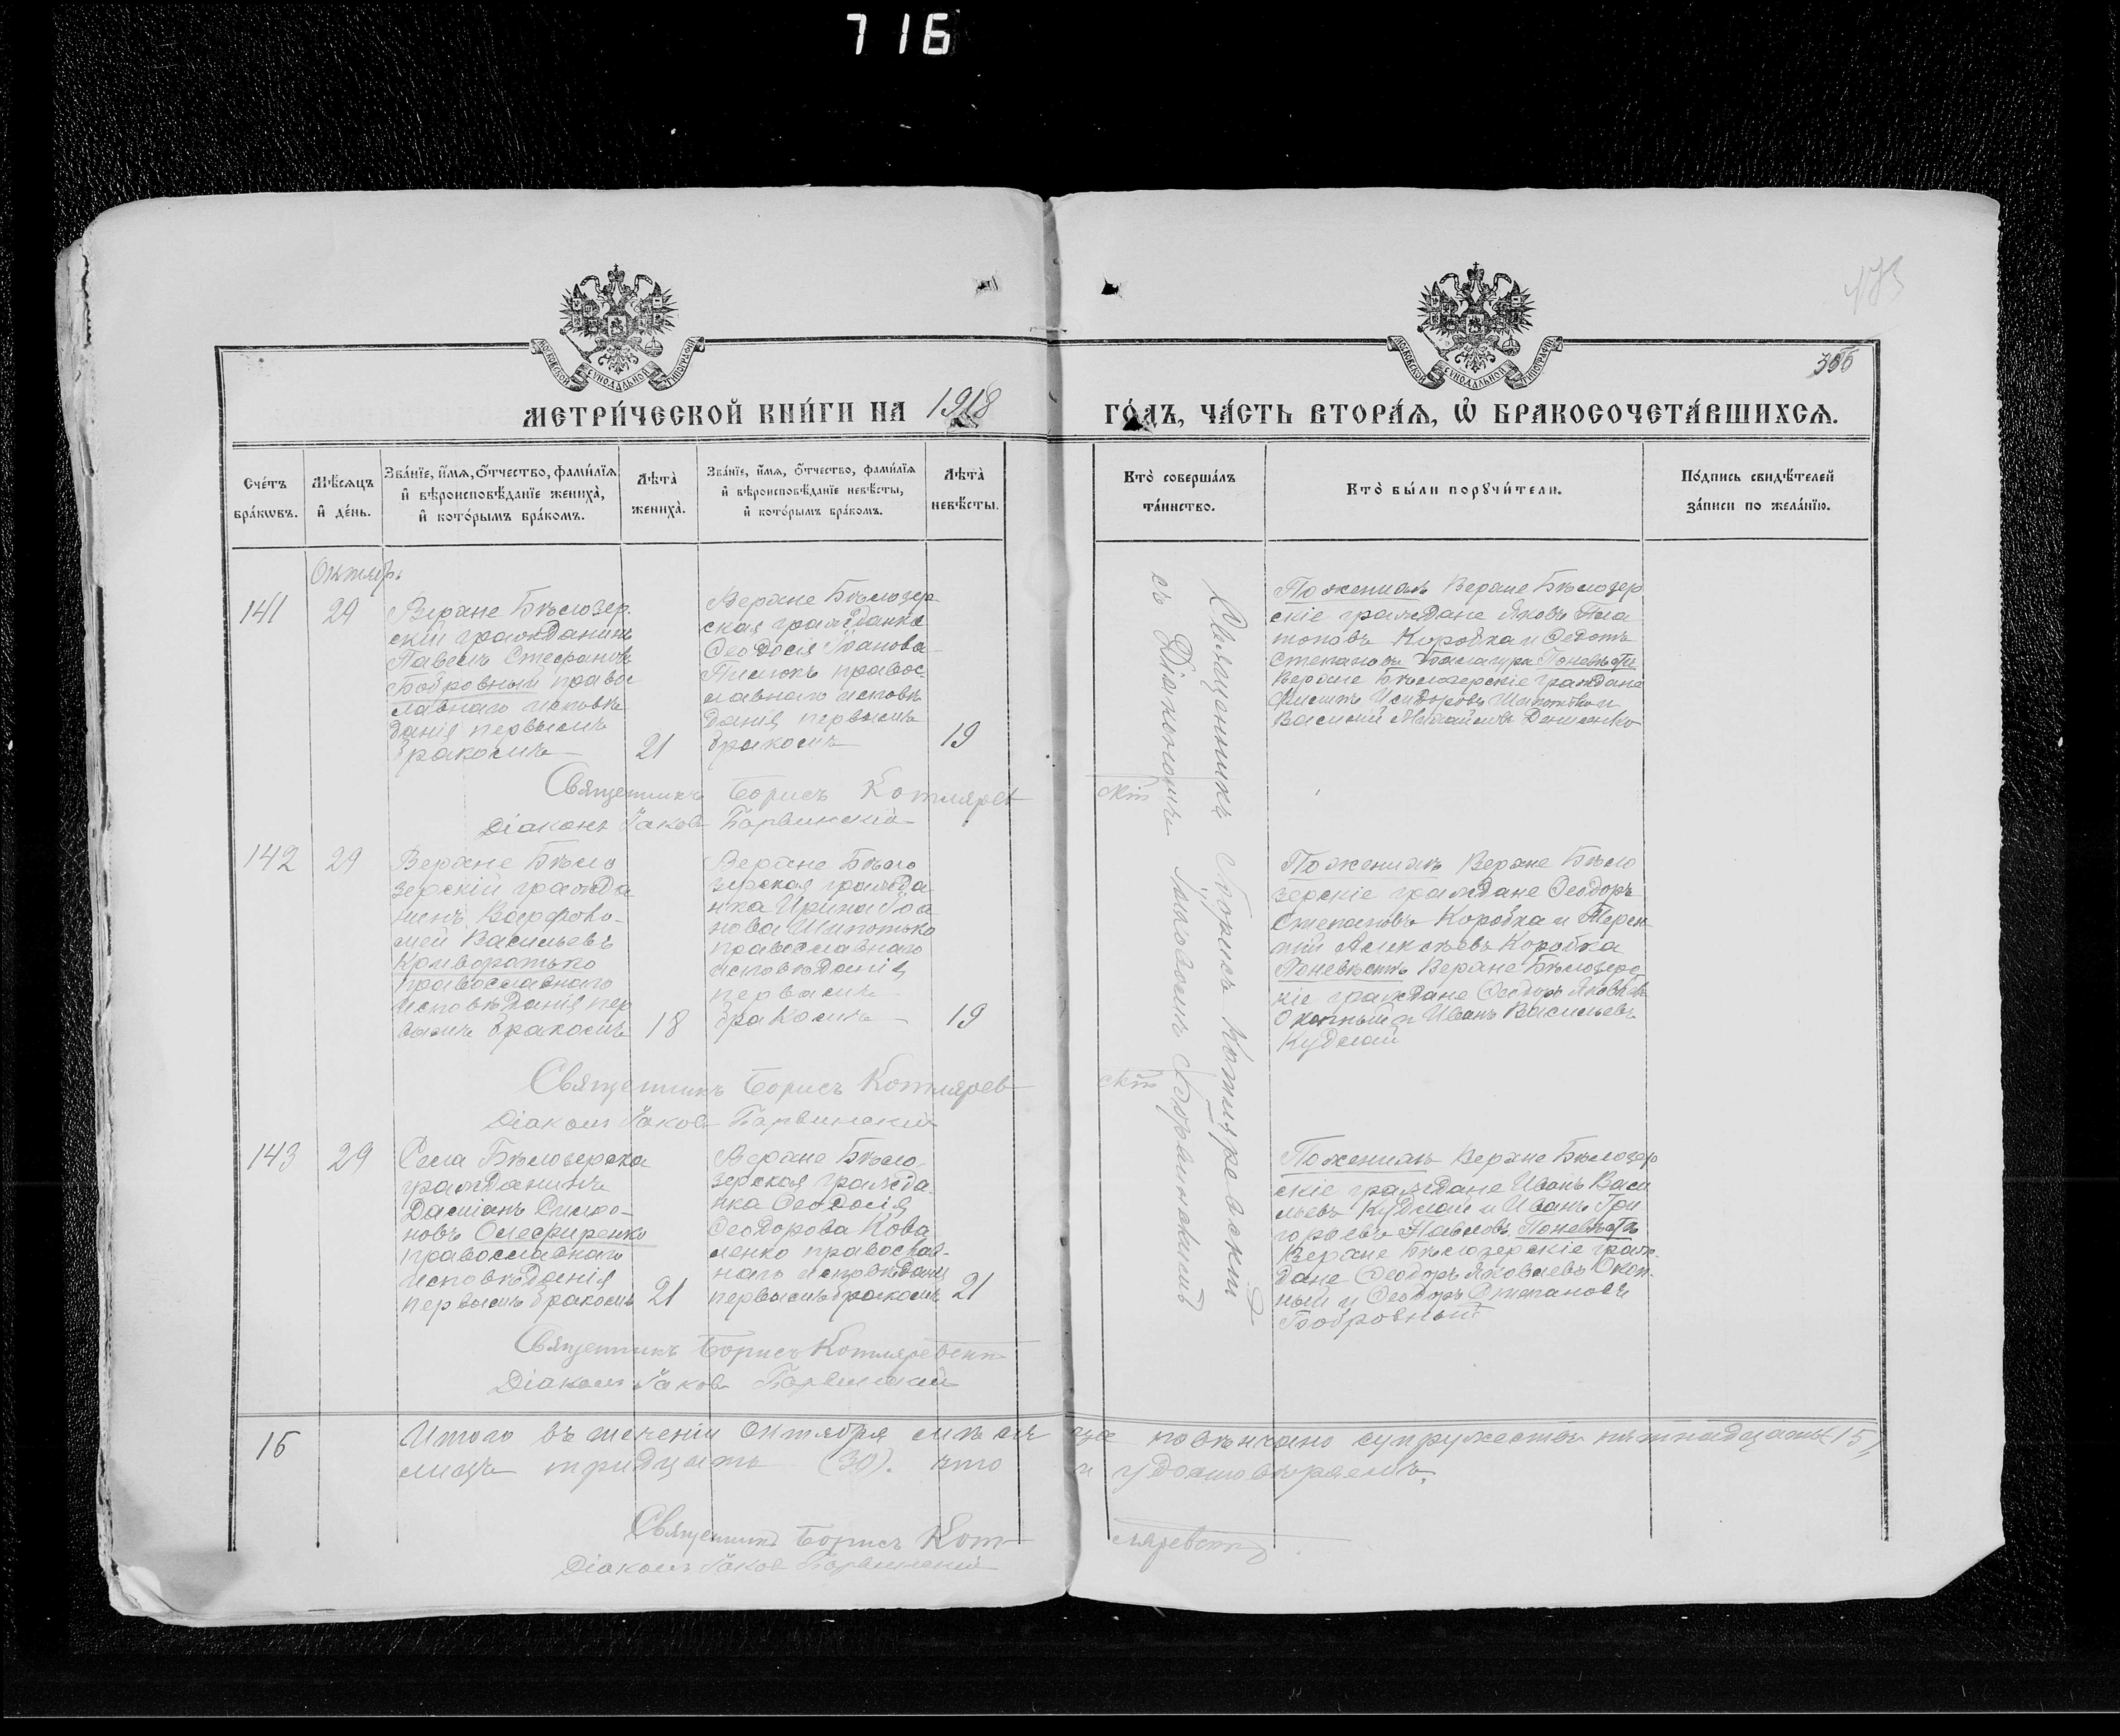 716
173
366
МОСКОВСКОЙ СУНОДАЛЬНОЙ ТИПОГРАФІИ
МОСКОВСКОЙ СУНОДАЛЬНОЙ ТИПОГРАФІИ
МЕТРИ́ЧЕСКОЙ КНИ́ГИ НА 1918
ГО́ДЪ, ЧА́СТЬ ВТОРА́Ѧ, Ѡ҆ БРАКОСОЧЕТА́ВШИХСѦ.
Сче́тъ бра́кѡвъ.
Мѣ́сѧцъ и҆ де́нь.
Зва́нїе, и҆́мѧ, ѻ҆́тчество, фами́лїѧ
и҆ вѣроисповѣ́данїе жениха̀,
и҆ кото́рымъ бра́комъ.
Лѣ́та̀ жениха̀.
Зва́нїе, и҆́мѧ, ѻ҆́тчество, фами́лїѧ
и҆ вѣроисповѣ́данїе невѣ́сты,
и҆ кото́рымъ бра́комъ.
Лѣ́та̀ невѣ́сты.
Кто̀ соверша́лъ
та́инство.
Кто̀ бы́ли порꙋчи́тели.
По́дпись свидѣ́телей
за́писи по жела́нїю.
Октябр.
141
29
Верхне Бѣлозер
скій гражданинъ
Павелъ Стефановъ
Бобровный правос
лавнаго исповѣ
данія первымъ
бракомъ
21
Верхне Бѣлозер
ская гражданка
Ѳеодосія Іоанова
правос
лавнаго исповѣ
данія первымъ
бракомъ
19
По женихѣ Верхне Бѣлозер
скіе граждане Яковъ Пла
тоновъ Коробка и Ѳедотъ
Степановъ По невѣстѣ
Верхне Бѣлозерскіе граждане
Исидоровъ Шапотько и
Василій Михайловъ Денисенко
Священникъ Борисъ Котлярев
скій
Діаконъ Іаковъ Барвинскій
Священникъ Борисъ Котляревскій
съ Діакономъ Іаковомъ Барвинскимъ
142
29
Верхне Бѣло
зерскій гражда
нинъ Варфоло
мей Васильевъ
Криворотько
православнаго
исповѣданія пер
вымъ бракомъ
18
Верхне Бѣло
зерская гражда
нка Ирина Іоа
нова Шапотько
православнаго
исповѣданія
первымъ
бракомъ
19
По женихѣ Верхне Бѣло
зерскіе граждане Ѳеодоръ
Степановъ Коробка и Терен
тій Алексѣевъ Коробка
По невѣстѣ Верхне Бѣлозерс
кіе граждане Ѳеодоръ Яковлевъ
Окопный и Иванъ Васильевъ
Кудлай
Священникъ Борисъ Котлярев
скій
Діаконъ Іаковъ Барвинскій
143
29
Села Бѣлозерска
гражданинъ
Даміанъ Симо
новъ Олефиренко
православнаго
исповѣданія
первымъ бракомъ
21
Верхне Бѣло
зерская гражда
нка Ѳеодосія
Ѳеодорова Кова
ленко православ
наго исповѣданія
первымъ бракомъ
21
По женихѣ Верхне Бѣлозер
скіе граждане Иванъ Васи
льевъ Кудлай и Иванъ Гри
горьевъ Павловъ По невѣстѣ
Верхне Бѣлозерскіе граж
дане Ѳеодоръ Яковлевъ Окоп
ный и Ѳеодоръ Степановъ
Бобровный
Священникъ Борисъ Котляревскій
Діаконъ Іаковъ Барвинскій
15
Итого въ теченіи Октября мѣсяца повѣнчано супружествъ пятнадцать (15)
лицъ тридцать (30). что и удостовѣряемъ.
Священникъ Борисъ Котляревскій
Діаконъ Іаковъ Барвинскій